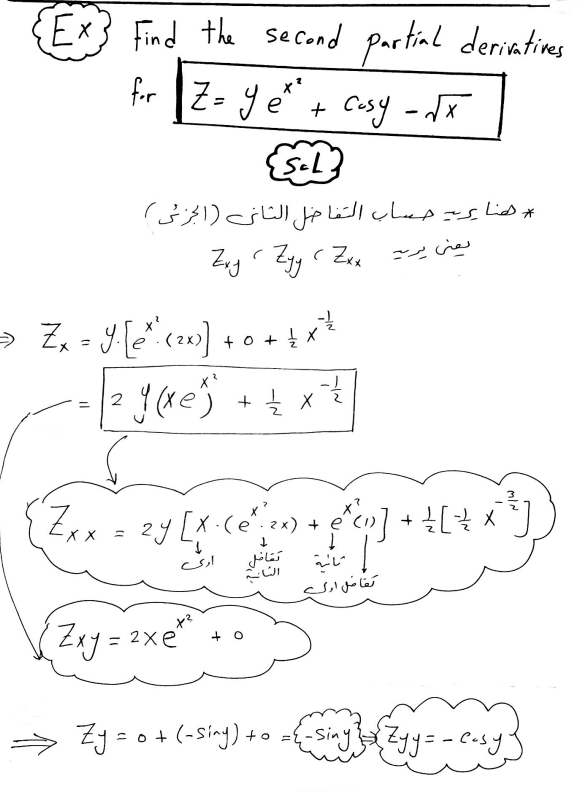 Ex Find the second partial derivatives
for Z = y e^{x²} + cosy - √x
Sol
* هنا يريد حساب التفاضل الثانى (الجزئى)
يعنى يريد Z_{xx} , Z_{yy} , Z_{xy}
⇒ Z_x = y.[e^{x²}.(2x)] + 0 + ½ x^{-½}
= 2 y(xe^{x²}) + ½ x^{-½}
Z_{xx} = 2y [x.(e^{x²}.2x) + e^{x²}(1)] + ½[-½ x^{-3/2}]
اولى تفاضل الثانية ثانية تفاضل اولى
Z_{xy} = 2xe^{x²} + 0
⇒ Zy = 0 + (-siny) + 0 = -siny ⇒ Zyy = - cosy